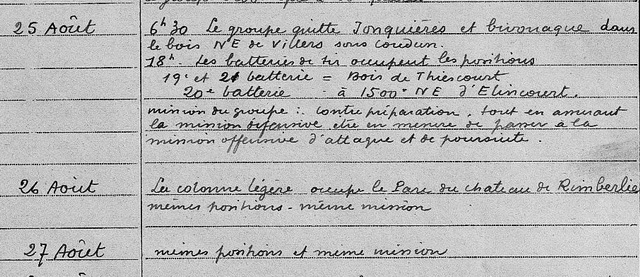 25 Août 6h 30 Le groupe quitte Jonquières et bivouaque dans
le bois NE de Villers sous Coudun.
18h. Les batteries de tir occupent les positions
19e et 21 batterie = Bois de Thiescourt
20e batterie - à 1500m NE d'Elincourt.
mission du groupe :. contre préparation, tout en assurant
la mission défensive être en mesure de passer à la
mission offensive d'attaque et de poursuite.
26 Août La colonne légère occupe le Parc du chateau de Rimberlie
mêmes positions - même mission
27 Août mêmes positions et même mission